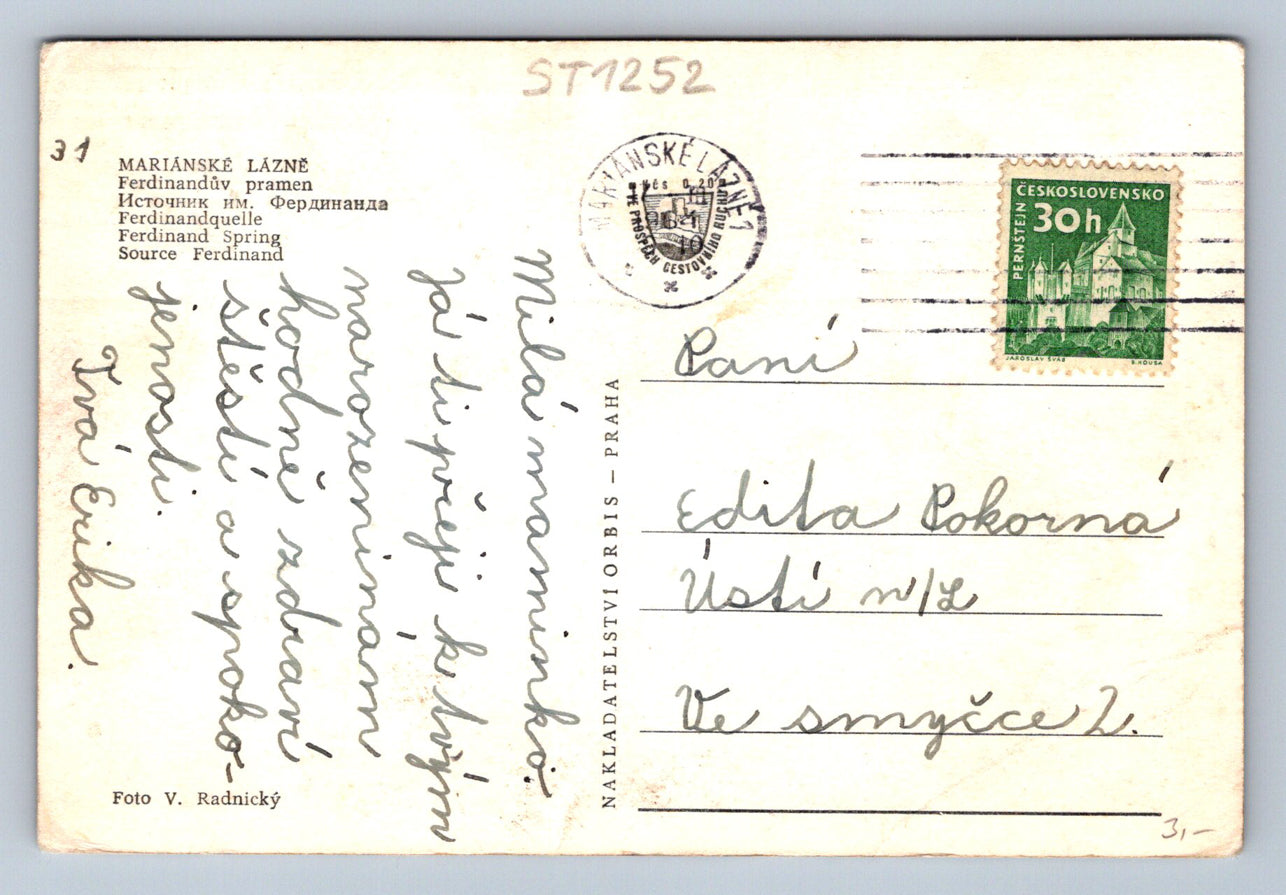 ST1252
31
MARIÁNSKÉ LÁZNĚ
Ferdinandův pramen
Источник им. Фердинанда
Ferdinandquelle
Ferdinand Spring
Source Ferdinand
Milá maminko.
Já ti přeji k tvým
narozeninam
hodně zdraví
štěstí a spoko-
jenosti.
Tvá Erika.
Foto V. Radnický
NAKLADATELSTVI ORBIS – PRAHA
MARIÁNSKÉ LÁZNĚ 1
VE PROSPĚCH CESTOVNÍHO RUCHU
ČESKOSLOVENSKO
30h
PERNŠTEJN
JAROSLAV ŠVÁB
B. HOUSA
Paní
Edita Pokorná
Ústí n/L
Ve smyčce 2.
3,–